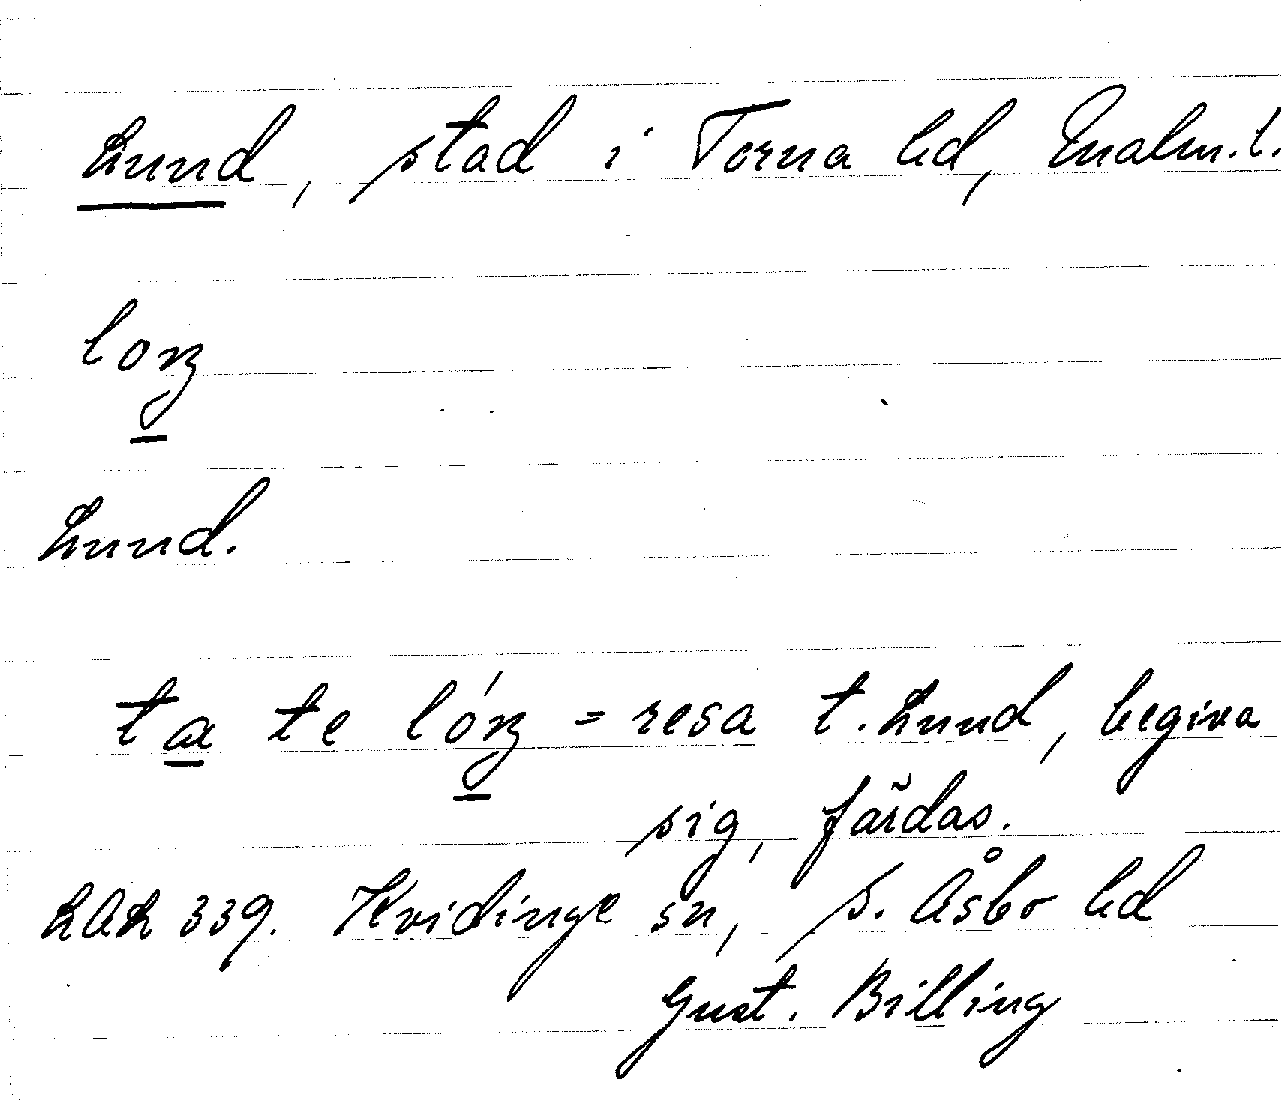 Lund, stad i Torna hd, Malm. l.
Lund.
ta te = resa t. Lund, begiva
sig, färdas.
LAL 339. Kvidinge sn, S. Åsbo hd
Gust. Billing